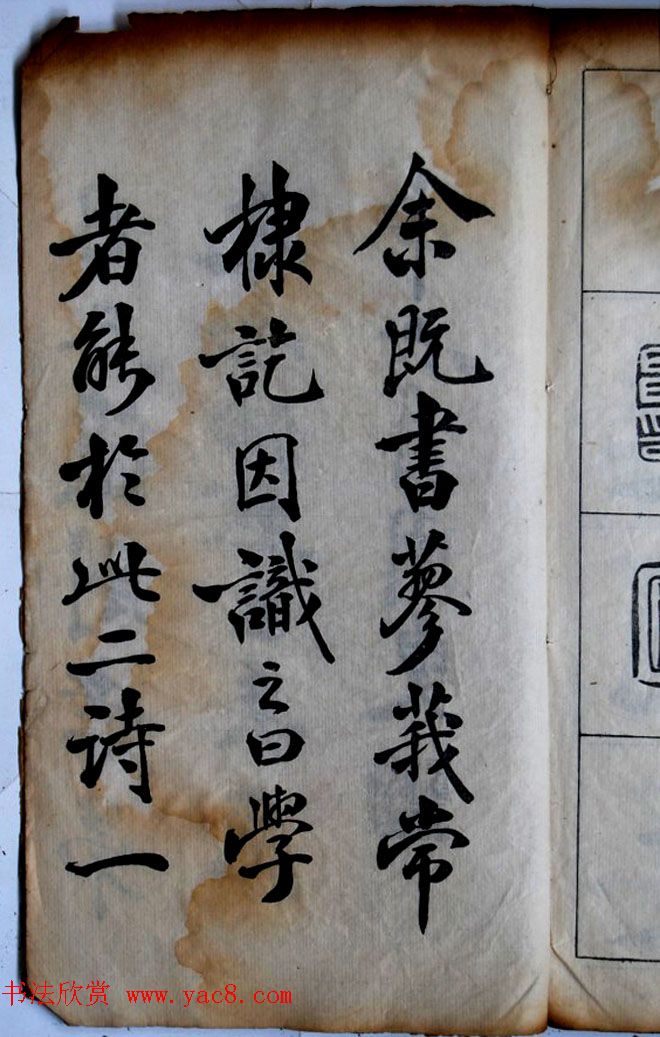 余既書蓼莪常
棣訖因識之曰學
者能於此二詩一
书法欣赏 www.yac8.com